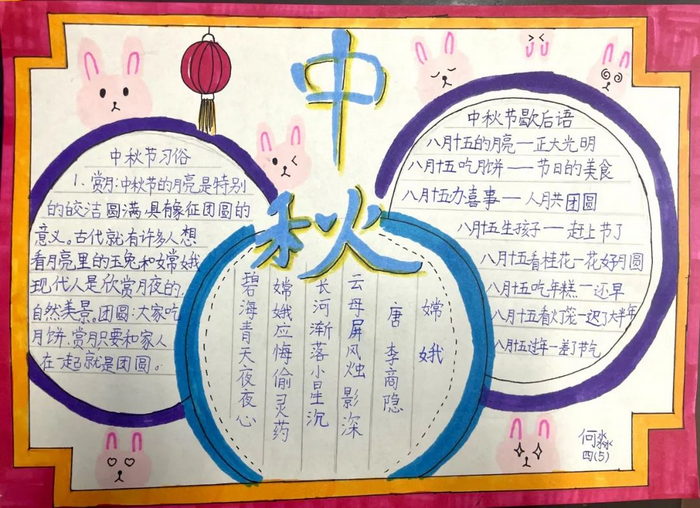 中
秋
中秋节习俗
1、赏月:中秋节的月亮是特别
的皎洁圆满,具有象征团圆的
意义。古代就有许多人想
看月亮里的玉兔和嫦娥
现代人是欣赏月夜的
自然美景。团圆:大家吃
月饼,赏月只要和家人
在一起就是团圆。
嫦娥
唐 李商隐
云母屏风烛影深
长河渐落小星沉
嫦娥应悔偷灵药
碧海青天夜夜心
中秋节歇后语
八月十五的月亮一正大光明
八月十五吃月饼——节日的美食
八月十五办喜事——人月共团圆
八月十五生孩子——赶上节了
八月十五看桂花一花好月圆
八月十五吃年糕一还早
八月十五看灯笼一迟了大半年
八月十五过年一差了节气
何淼
四(5)